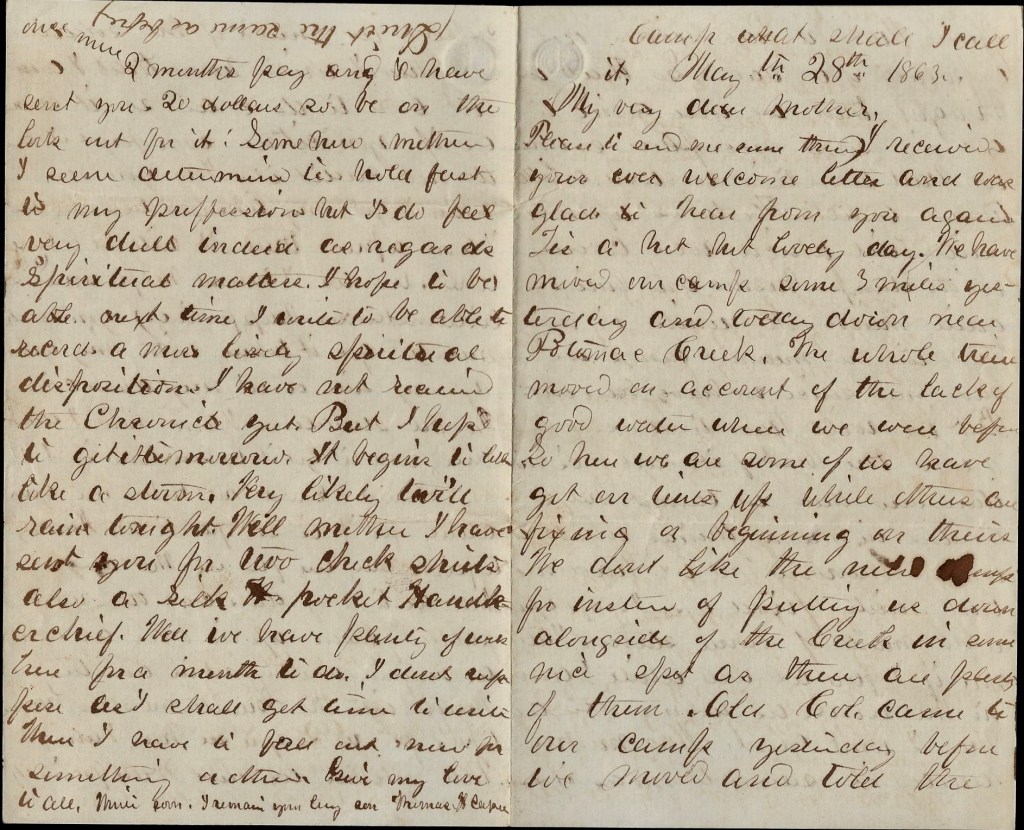 Camp what shall I call
it. May th 28th 1863.
My very dear mother,
Please to send me some thread I received
your ever welcome letter and was
glad to hear from you again
Tis a hot but lovely day. We have
moved our camp some 3 miles yes-
terday and today down near
Potomac Creek. The whole
moved on account of the lack of
good water where we were before
So here we are some of us have
got our tents up while others are
fixing or beginning on theirs
We dont like the new camp
for insted of putting us down
alongside of the Creek in some
nice spot as there are plenty
of them. Old Col. came to
our camp yesterday before
we moved and told the
(Direct the same as before)
2 months pay and I have
sent you 20 dollars so be on the
look out for it! Somehow mother
I seem determine to hold fast
to my proffession but I do feel
very dull indeed as regards
Spiritual matters. I hope to be
able next time I write to be able to
record a more lively spiritual
disposition. I have not received
the Chronicle yet. But I hope
to get it tomorrow. It begins to look
like a storm. Very likely twill
rain tonight. Well mother I have
sent you for two check shirts
also a silk pocket Handk-
erchief. Well we have plenty of work
here for a month to do. I dont sup
pose as I shall get time to write
Then I have to fall out now for
something or other. Give my love
to all, Write soon. I remain your lovg son Thomas H